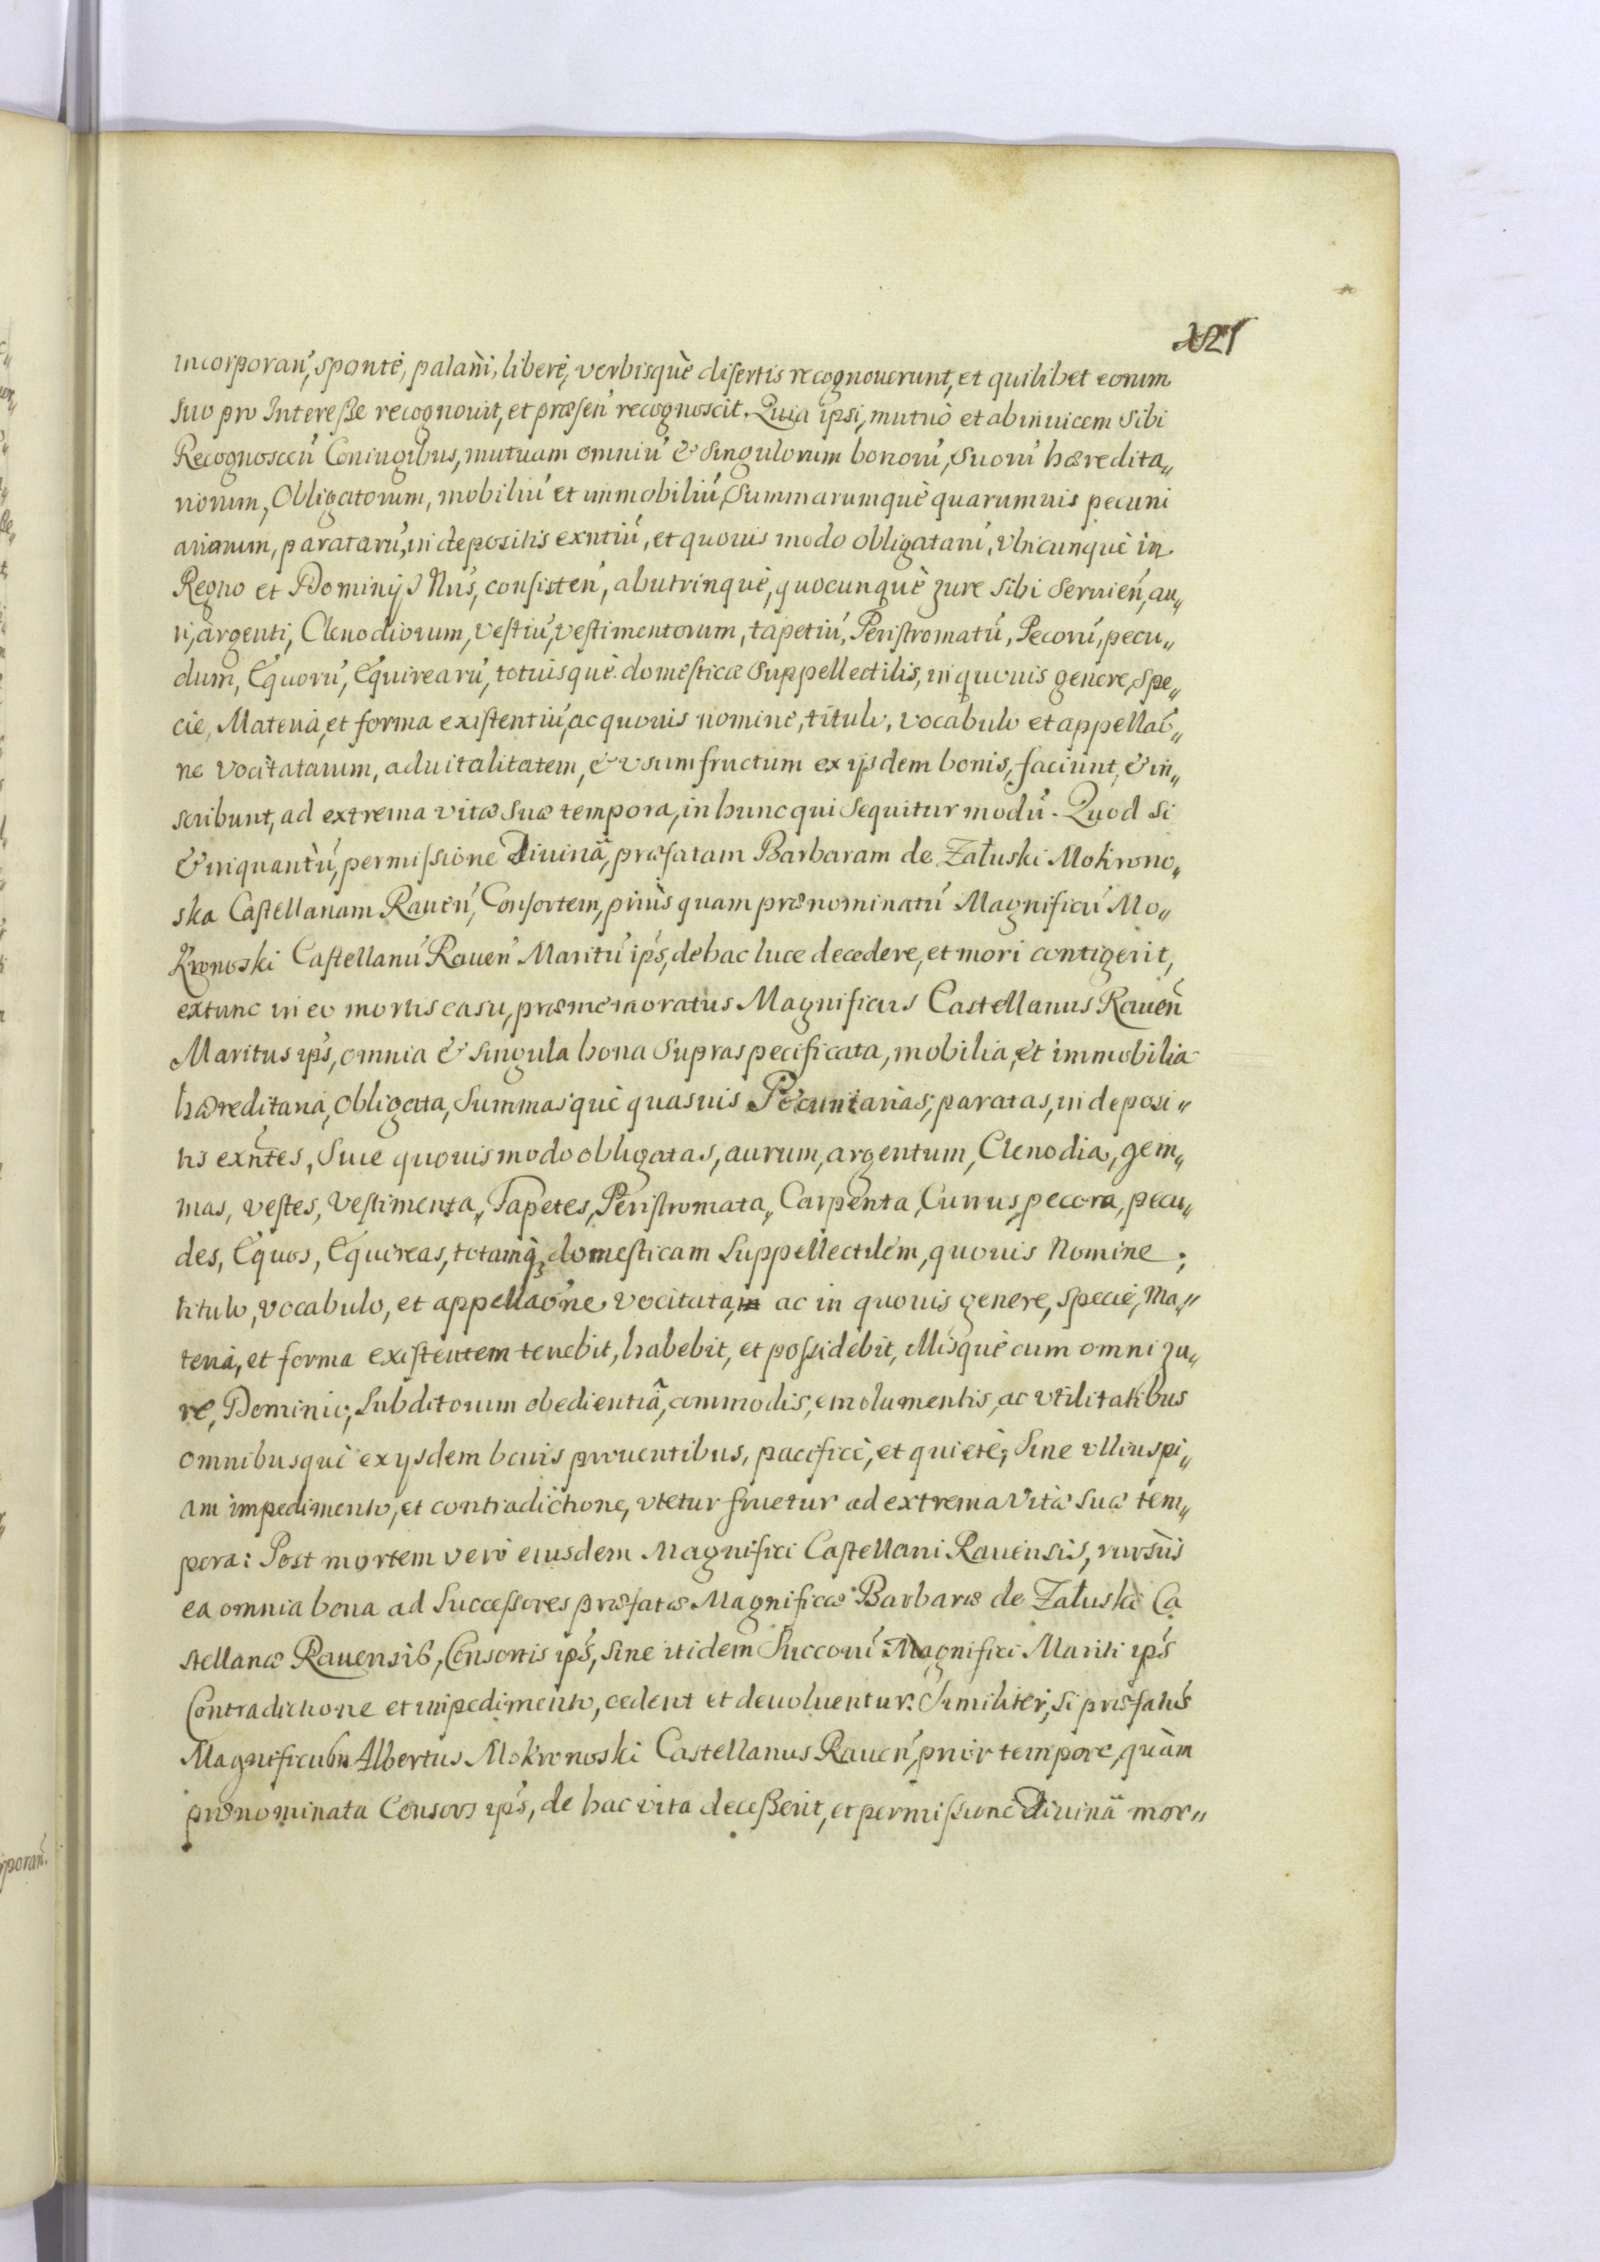 incorporan̄, spontè, palam, liberè, verbisquè disertis recognouerunt, et quilibet eorum
suo pro Interesse recognouit, et præsen̄ recognoscit. Quia ipsi, mutuò et abinuicem sibi
Recognoscen̄ Coniugibus, mutuam omniū & singulorum bonorū, suorū hæredita„
riorum, Obligatorum, mobiliū et immobiliū, Summarumquè quarumuis pecuni
ariarum, paratarū, in depositis exn̄tiū, et quouis modo obligatarū, vbicunquè in
Regno et Dominijs Nr̄is, consisten̄, abutrinquè, quocunquè jure sibi seruien̄, au„
ri, argenti, Clenodiorum, vestiū, vestimentorum, tapetiū, Peristromatū, Pecorū, pecu„
dum, Equorū, Equirearū, totiusquè domesticæ Suppellectilis, in quouis genere, spe„
cie, Materia, et forma existentiū, ac quouis nomine, titulo, vocabulo et appellaō„
ne vocitatarum, aduitalitatem, & vsumfructum ex ijsdem bonis, faciunt, & in„
scribunt, ad extrema vitæ suæ tempora, in hunc qui sequitur modū. Quod si
& inquantū, permissione Diuinâ, præfatam Barbaram de Załuski Mokrono„
ska Castellanam Rauen̄, Consortem, priùs quam prænominatū Magnificū Mo„
kronoski Castellanū Rauen̄ Maritū ips̄, de hac luce decedere, et mori contigerit,
extunc in eo mortis casu, præmemoratus Magnificus Castellanus Rauen̄
Maritus ips̄, omnia & singula bona supraspecificata, mobilia, et immobilia
hæreditaria, obligata, summasquè quasuis Pecuniarias, paratas, in deposi„
tis exn̄tes, siue quouis modo obligatas, aurum, argentum, Clenodia, gem„
mas, vestes, vestimenta, Tapetes, Peristromata, Carpenta, Currus, pecora, pecu„
des, Equos, Equireas, totamq̢ domesticam suppellectilem, quouis Nomine,
titulo, vocabulo, et appellaōne vocitatam ac in quouis genere, specie, ma„
teria, et forma existentem tenebit, habebit, et possidebit, illisquè cum omni ju„
re, Dominio, subditorum obedientiâ, commodis, emolumentis, ac vtilitatibus
omnibusquè ex ijsdem bonis prouentibus, pacificè, et quietè, sine vlliuspi„
am impedimento, et contradictione, vtetur fruetur ad extrema vitæ suæ tem„
pora: Post mortem verò eiusdem Magnifici Castellani Rauensis, rursùs
ea omnia bona ad Successores præfatæ Magnificæ Barbaræ de Załuski Ca
stellanæ Rauensis, Consortis ips̄, sine itidem Succorū Magnifici Mariti ips̄
Contradictione et impedimento, cedent et deuoluentur. Similiter, si præfatus
Magnificus Albertus Mokronoski Castellanus Rauen̄, prior tempore, quàm
prænominata Consors ips̄, de hac vita decesserit, et permissione Diuinâ mor„